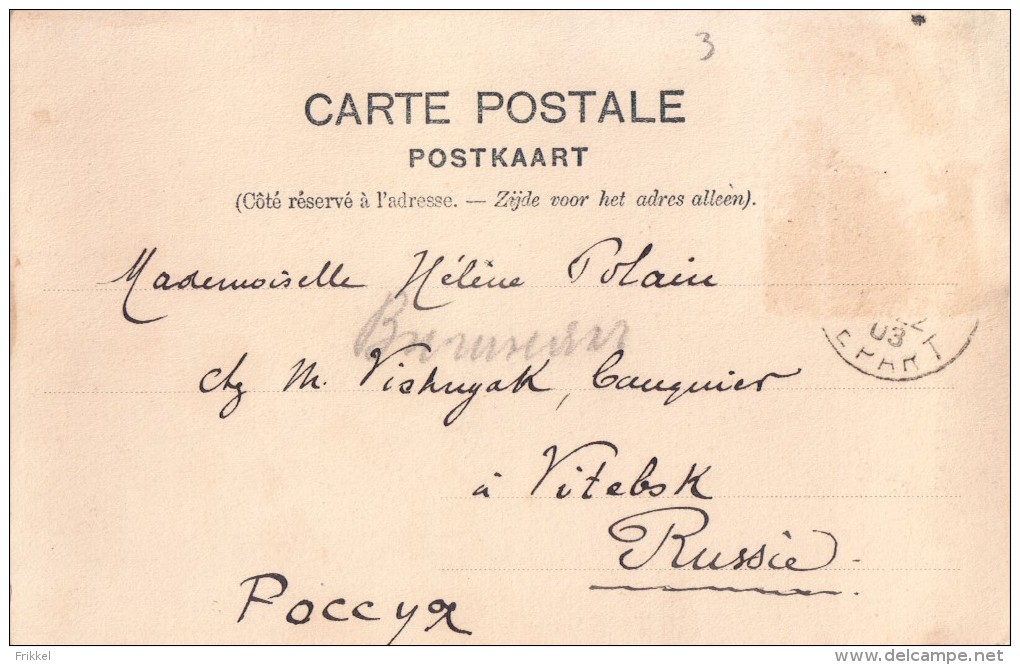 3
CARTE POSTALE
POSTKAART
(Côté réservé à l'adresse. — Zijde voor het adres alleen).
Mademoiselle Hélène Polain
chz M. Vishnyak, banquier
à Vitebsk
Russie.
Россуя
03
EPART
Frikkel
delcampe.net